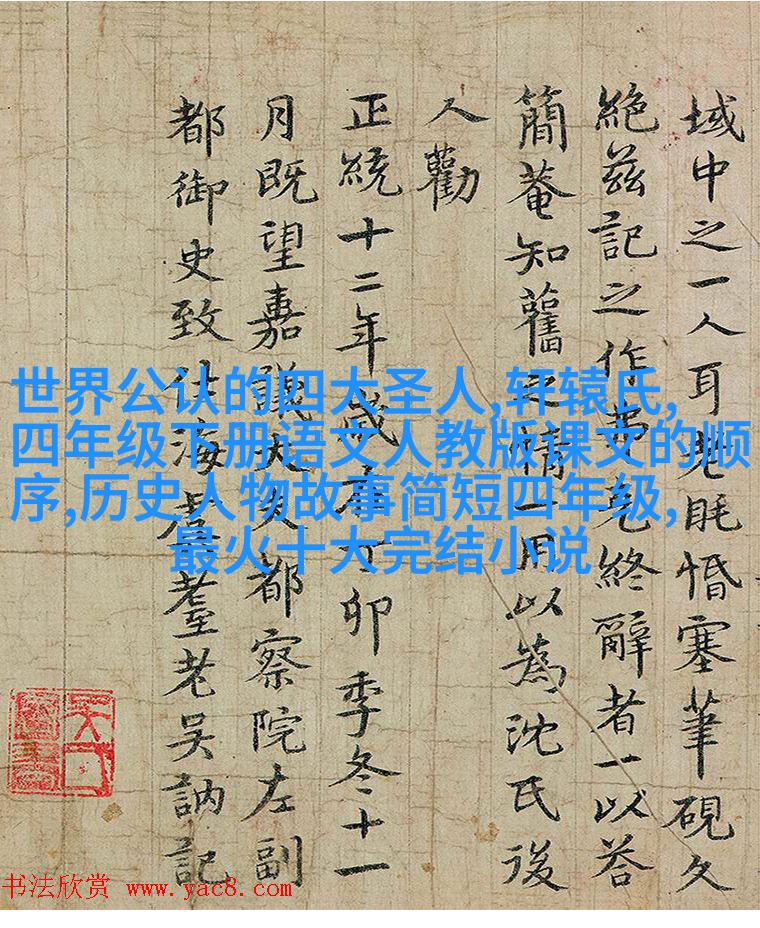 域中之一人耳老眊惛塞筆硯久
絶兹記之作弗克終辭者一以荅
簡菴知舊之情一用以為沈氏後
人勸
正統十二年歲在丁卯季冬十一
月既望嘉議大夫都察院左副
都御史致仕海虞耋老吴訥記
世界公认的四大圣人,轩辕氏,
四年级下册语文人教版课文的顺
序,历史人物故事简短四年级,
最火十大完结小说
书法欣赏 www.yac8.com